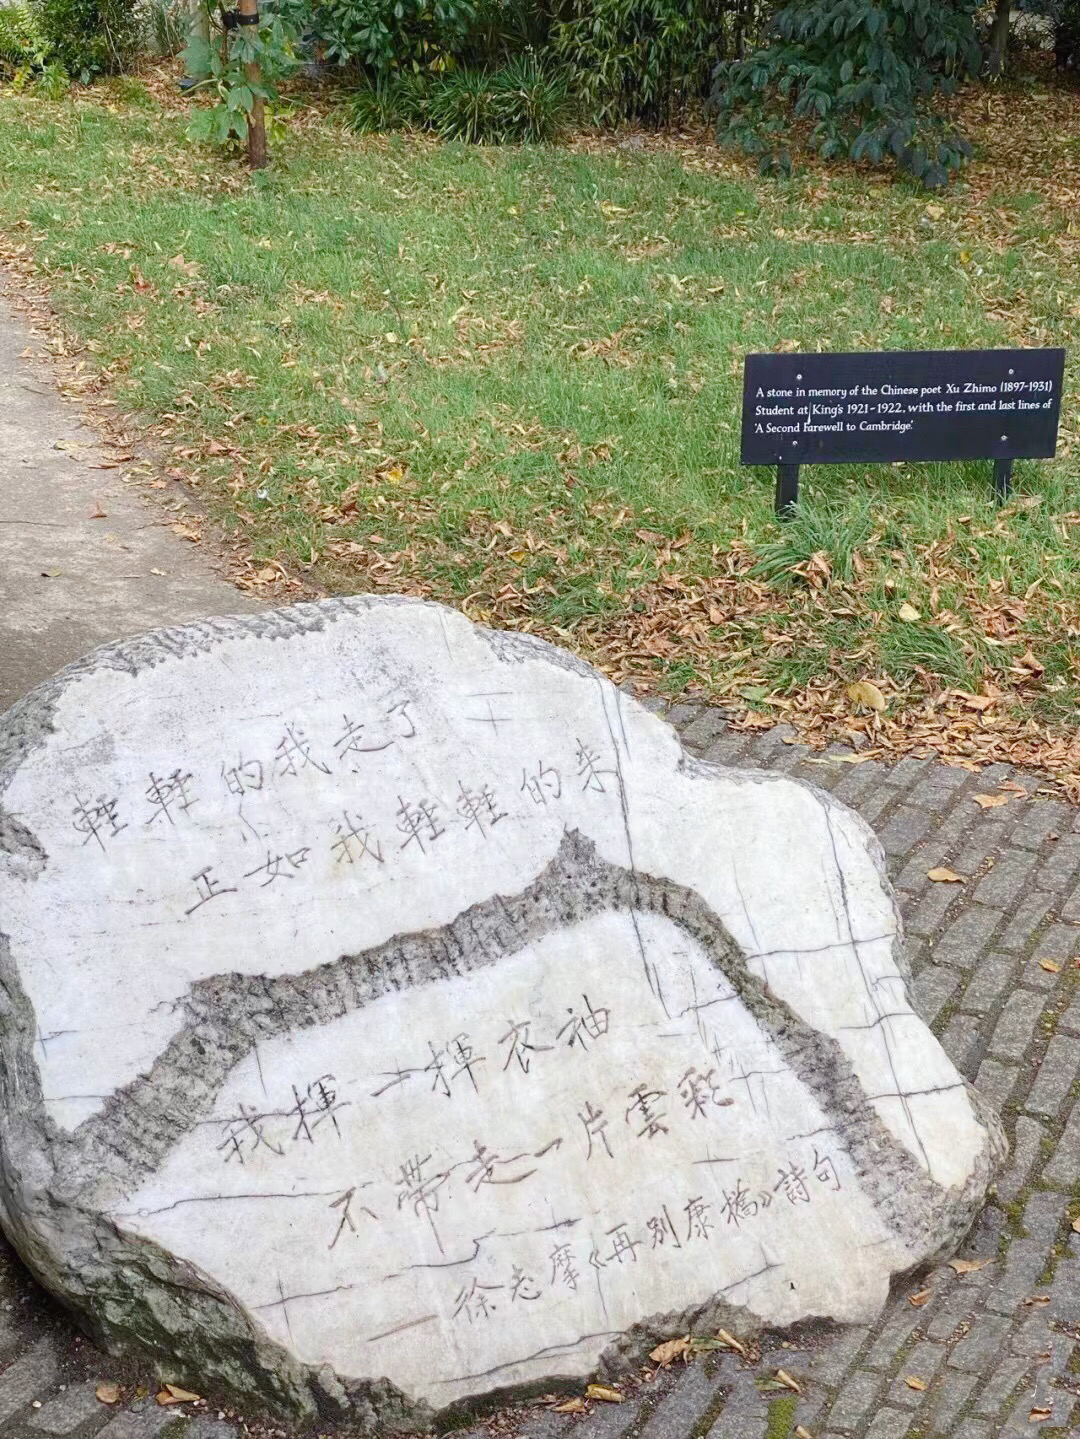 A stone in memory of the Chinese poet Xu Zhimo (1897-1931)
Student at King's 1921-1922, with the first and last lines of
'A Second Farewell to Cambridge.'
輕輕的我走了
正如我輕輕的来
我揮一揮衣袖
不帶走一片雲彩
——徐志摩《再別康橋》詩句